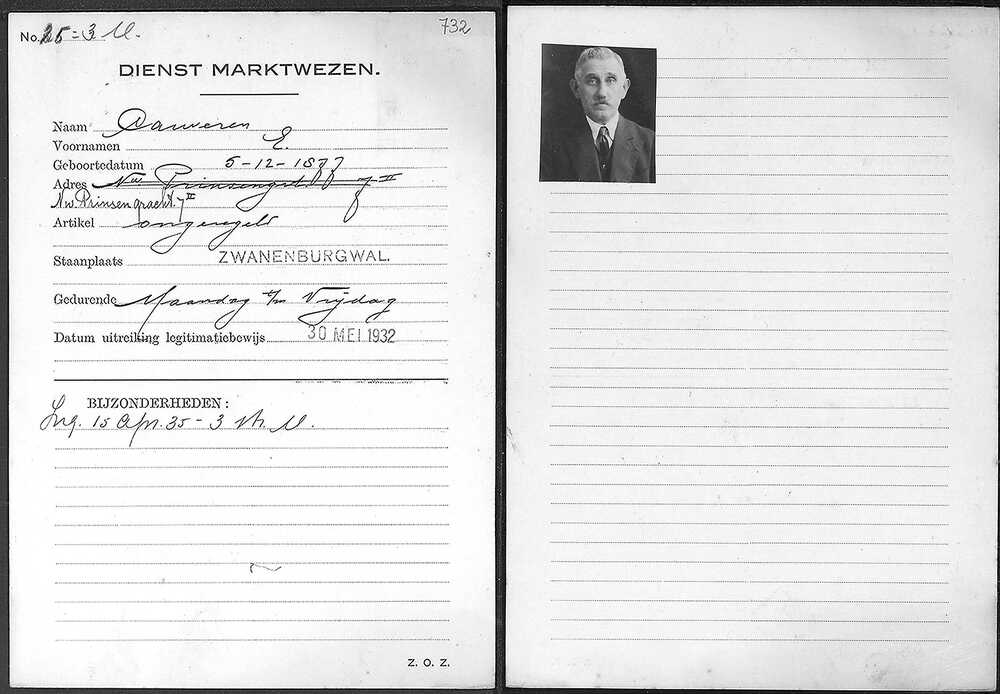 No. 25 = 3 M.
732
DIENST MARKTWEZEN.
Naam Cauveren
Voornamen E.
Geboortedatum 5-12-1877
Adres Nw. Prinsengr. 7 II
Nw. Prinsengracht. 7 II
Artikel ongeregeld
Staanplaats ZWANENBURGWAL.
Gedurende Maandag t/m Vrijdag
Datum uitreiking legitimatiebewijs 30 MEI 1932
BIJZONDERHEDEN:
Ing. 15 Apr. 35 - 3 M.
Z. O. Z.